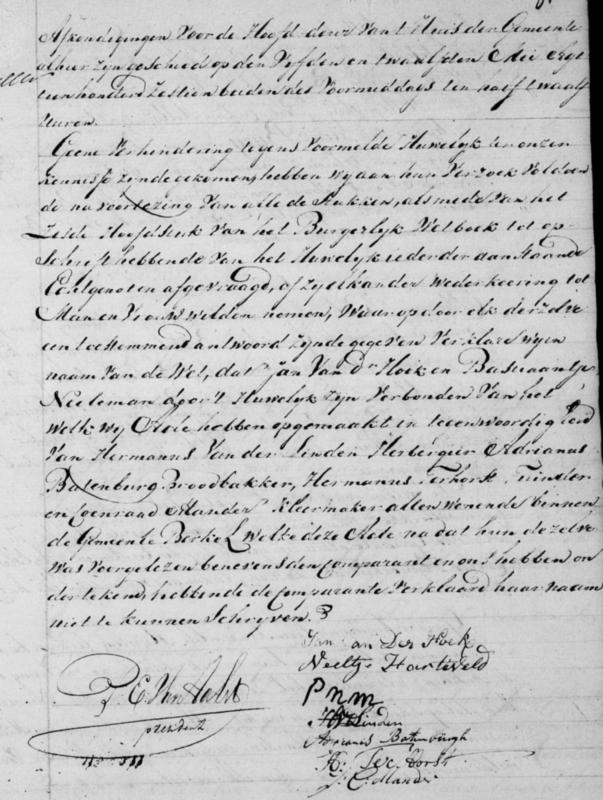 Afkondigingen Voor de Hoofd-deur Van t Huis der Gemeente
alhier zyn geschied op den Vyfden en twaalfden Mei Agt
tien honderd Zestien beiden des Voormiddags ten half twaalf
Uuren.
Geene Verhindering tegens Voormelde Huwelyk ten onzen
kennisse zynde gekomen, hebben wy aan hun Verzoek Voldoen
de na voorlezing Van alle de Stukken, alsmede Van het
Zesde Hoofdstuk Van het Burgerlyk Wetboek tot op-
schrift hebbende Van het Huwelyk ieder der aanstaande
Echtgenoten afgevraagd, of zy elkander Wederkeering tot
Man en Vrouw wilden nemen, Waar op door elk derzelve
een toestemmend antwoord zynde gegeven Verklare wy in
naam Van de Wet, dat Jan Van Dr Hoek en Bastiaantje
Neeleman door 't Huwelyk zyn Verbonden Van het
Welk wy Acte hebben opgemaakt in tegenwoordigheid
Van Hermanus Van der Linden Herbergier Adrianus
Batenburg Broodbakker, Hermanus Terhorst Tuinder
en Coenraad Mander Kleermaker allen wonende binnen
de Gemeente Berkel Welke deze Acte na dat hun dezelve
Was voorgelezen benevens den Comparant en ons hebben on
dertekend, hebbende de Comparante Verklaard haar naam
niet te kunnen Schryven.
Jan van Der Hoek
Neeltje Harteveld
P. E. Van Aelst
president
P n m
HV Linden
Adrianus Batenburgh
H: Ter Horst